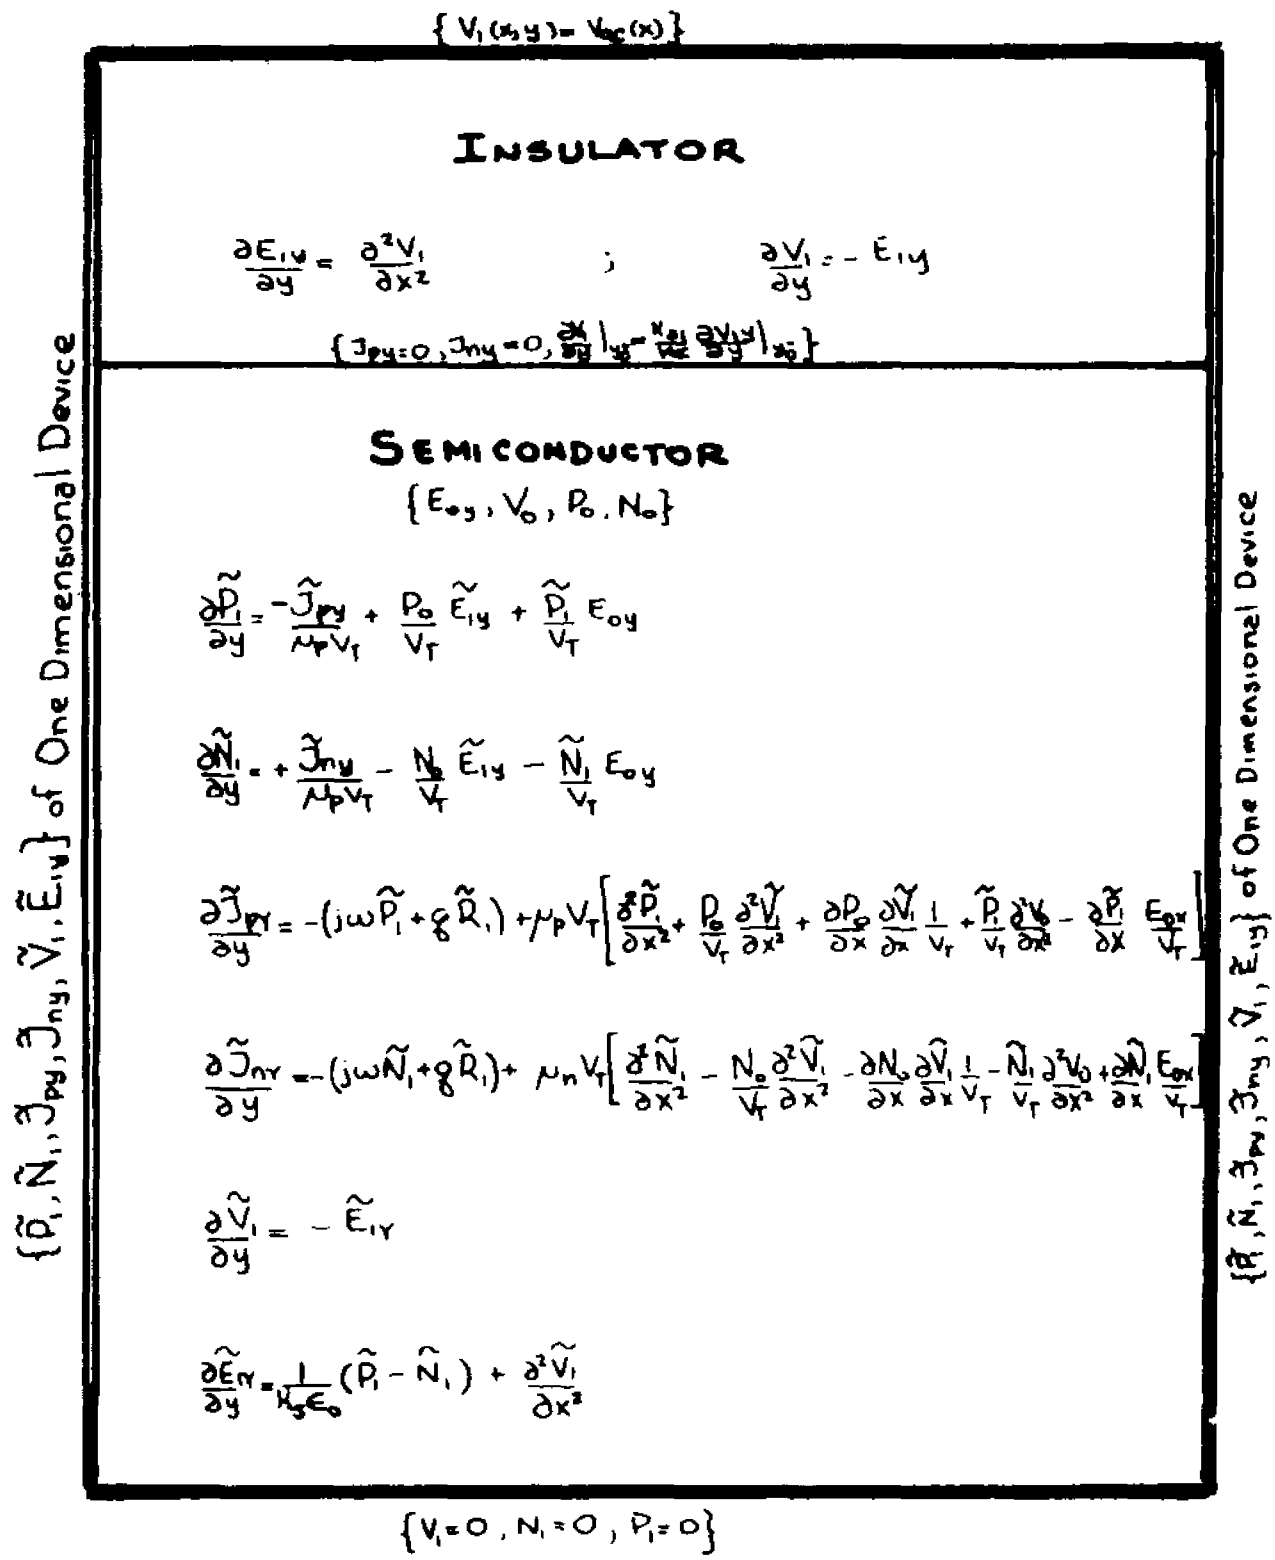 { V₁(x,y) = V_ac(x) }
INSULATOR
∂E₁y/∂y = ∂²V₁/∂x² ; ∂V₁/∂y = - E₁y
{ J_py=0, J_ny=0,
SEMICONDUCTOR
{E₀y, V₀, P₀, N₀}
∂P̃₁/∂y = -J̃_py/μ_pV_T + P₀/V_T Ẽ₁y + P̃₁/V_T E₀y
∂Ñ₁/∂y = + J̃_ny/μ_pV_T - N₀/V_T Ẽ₁y - Ñ₁/V_T E₀y
∂J̃_pY/∂y = -(jωP̃₁ + qR̃₁) + μ_pV_T[∂²P̃₁/∂x² + P₀/V_T ∂²Ṽ₁/∂x² + ∂P₀/∂x ∂Ṽ₁/∂x 1/V_T + P̃₁/V_T ∂²V₀/∂x² - ∂P̃₁/∂x E₀x/V_T]
∂J̃_nY/∂y = -(jωÑ₁ + qR̃₁) + μ_nV_T[∂²Ñ₁/∂x² - N₀/V_T ∂²Ṽ₁/∂x² - ∂N₀/∂x ∂Ṽ₁/∂x 1/V_T - Ñ₁/V_T ∂²V₀/∂x² + ∂Ñ₁/∂x E₀x/V_T]
∂Ṽ₁/∂y = - Ẽ₁Y
∂Ẽ₁Y/∂y = 1/K_sϵ₀ (P̃₁ - Ñ₁) + ∂²Ṽ₁/∂x²
{V₁=0, N₁=0, P₁=0}
{P̃₁, Ñ₁, J̃_py, J̃_ny, Ṽ₁, Ẽ₁y} of One Dimensional Device
{P̃₁, Ñ₁, J̃_py, J̃_ny, Ṽ₁, Ẽ₁y} of One Dimensional Device